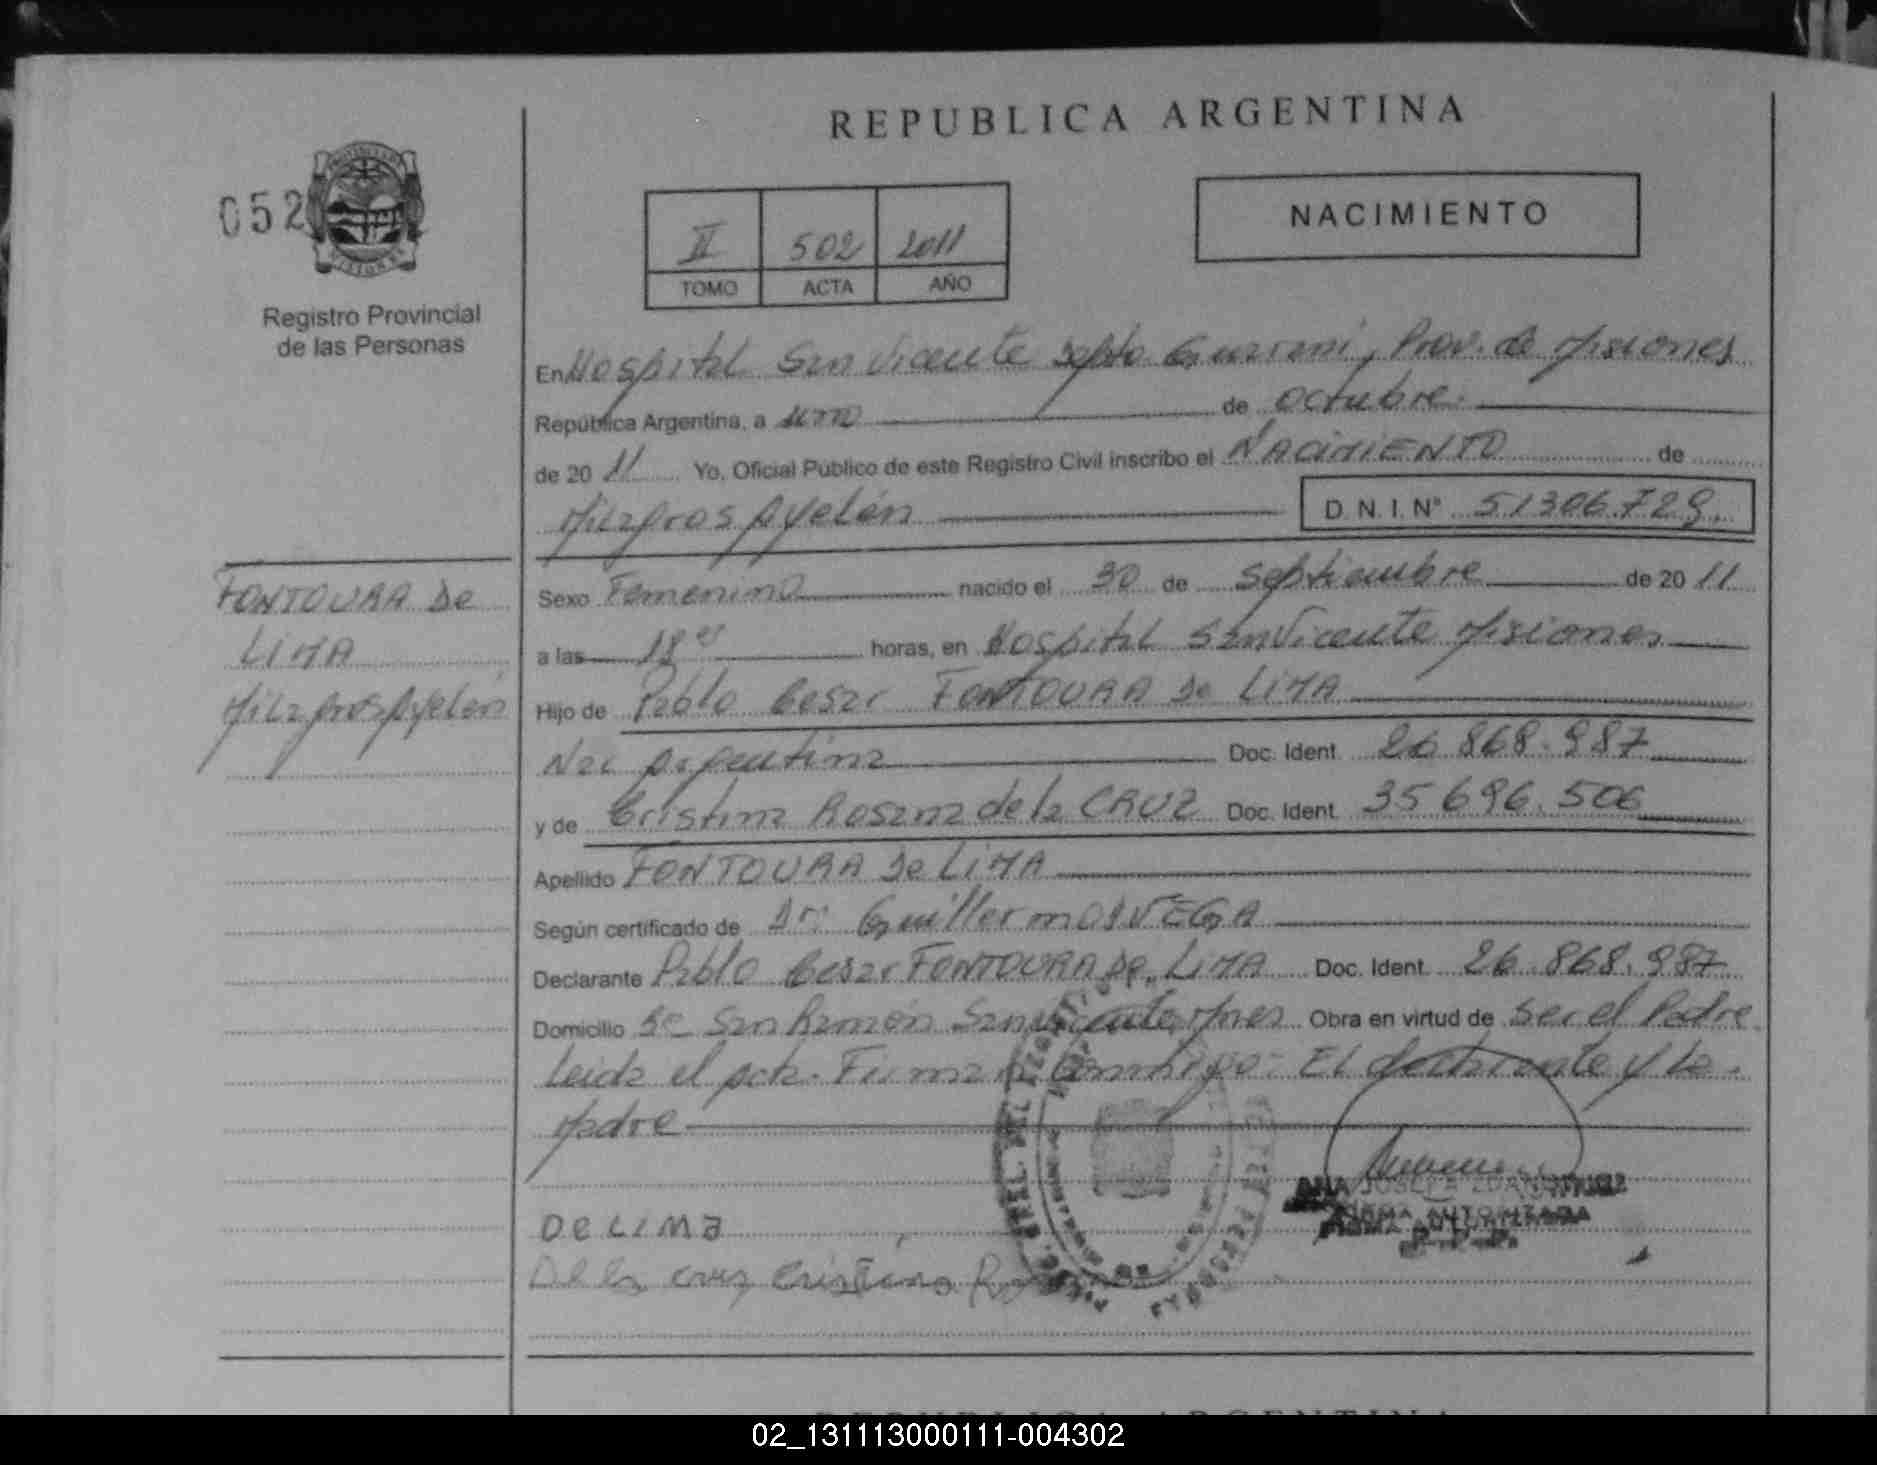 REPUBLICA ARGENTINA
052
Registro Provincial
de las Personas
II 502 2011
TOMO ACTA AÑO
NACIMIENTO
En Hospital San Vicente Dpto Guarani, Prov. de Misiones
República Argentina, a uno de octubre.
de 20 11 Yo, Oficial Público de este Registro Civil inscribo el NACIMIENTO de
Milagros Ayelén D.N.I. N° 51306.729
FONTOURA De
LIMA
Milagros Ayelén
Sexo Femenino nacido el 30 de Septiembre de 20 11
a las 18 horas, en Hospital San Vicente Misiones
Hijo de Pablo Cesar FONTOURA De LIMA
Nac Argentina Doc. Ident. 26 868.987
y de Cristina Rosana de la CRUZ Doc. Ident. 35 696.506
Apellido FONTOURA De LIMA
Según certificado de Dr. Guillermo VEGA
Declarante Pablo Cesar FONTOURA De LIMA Doc. Ident. 26.868.987
Domicilio San Ramón San Vicente Mnes Obra en virtud de ser el Padre
Leida el Acta. Firman Conmigo: El declarante y la
Madre
ANA JOSEFA
FIRMA AUTORIZADA
R. P. P.
De LIMA
De la cruz Cristina
02_131113000111-004302